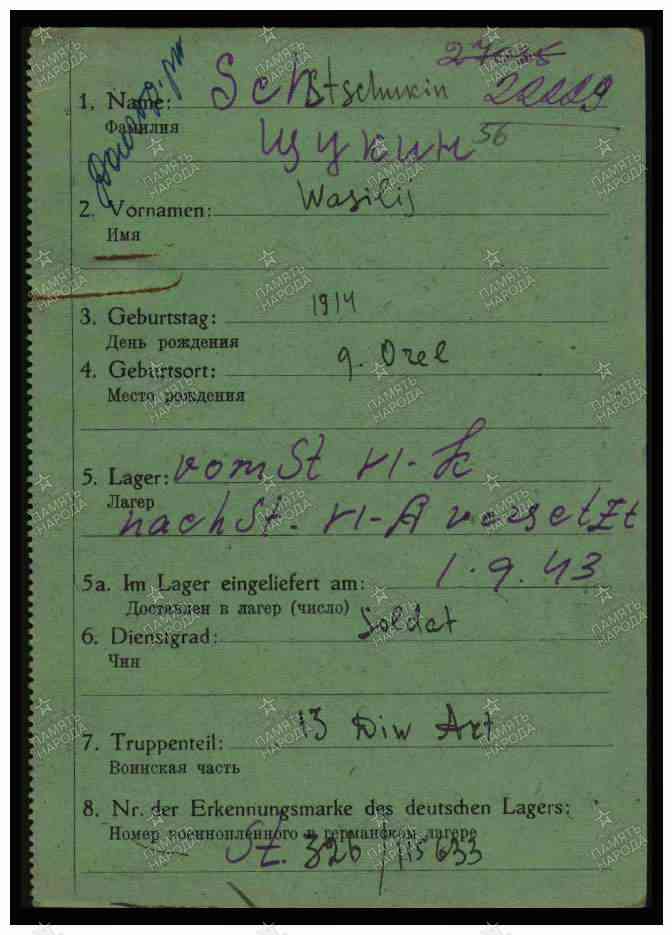 27035
1. Name: Schtschukin 22229
Фамилия
Щукин 56
2. Vornamen: Wasilij
Имя
3. Geburtstag: 1914
День рождения
4. Geburtsort: g. Orel
Место рождения
5. Lager: vom St VI-K
Лагер
nach St. VI-A versetzt
5a. Im Lager eingeliefert am: 1.9.43
Доставлен в лагер (число)
6. Dienstgrad: Soldat
Чин
7. Truppenteil: 13 Diw Art
Воинская часть
8. Nr. der Erkennungsmarke des deutschen Lagers:
Номер военнопленного в германском лагере
St. 326 / 115633
ПАМЯТЬ НАРОДА